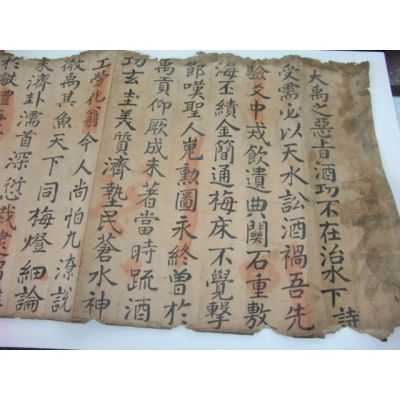 大禹之惡旨酒功不在治水下 詩
受需必以天水訟酒禍吾先
驗爻中戒飲遺典関石重敷
海丕績金簡通梅床不覺擊
節嘆聖人嵬勲圖永終曽於
禹貢仰厥成未著當時疏酒
功玄圭美質濟墊民蒼水神
工勞化翁今人尚怕九潦說
微禹其魚天下同梅燈細論
未濟卦濡首深愆
於獻豊